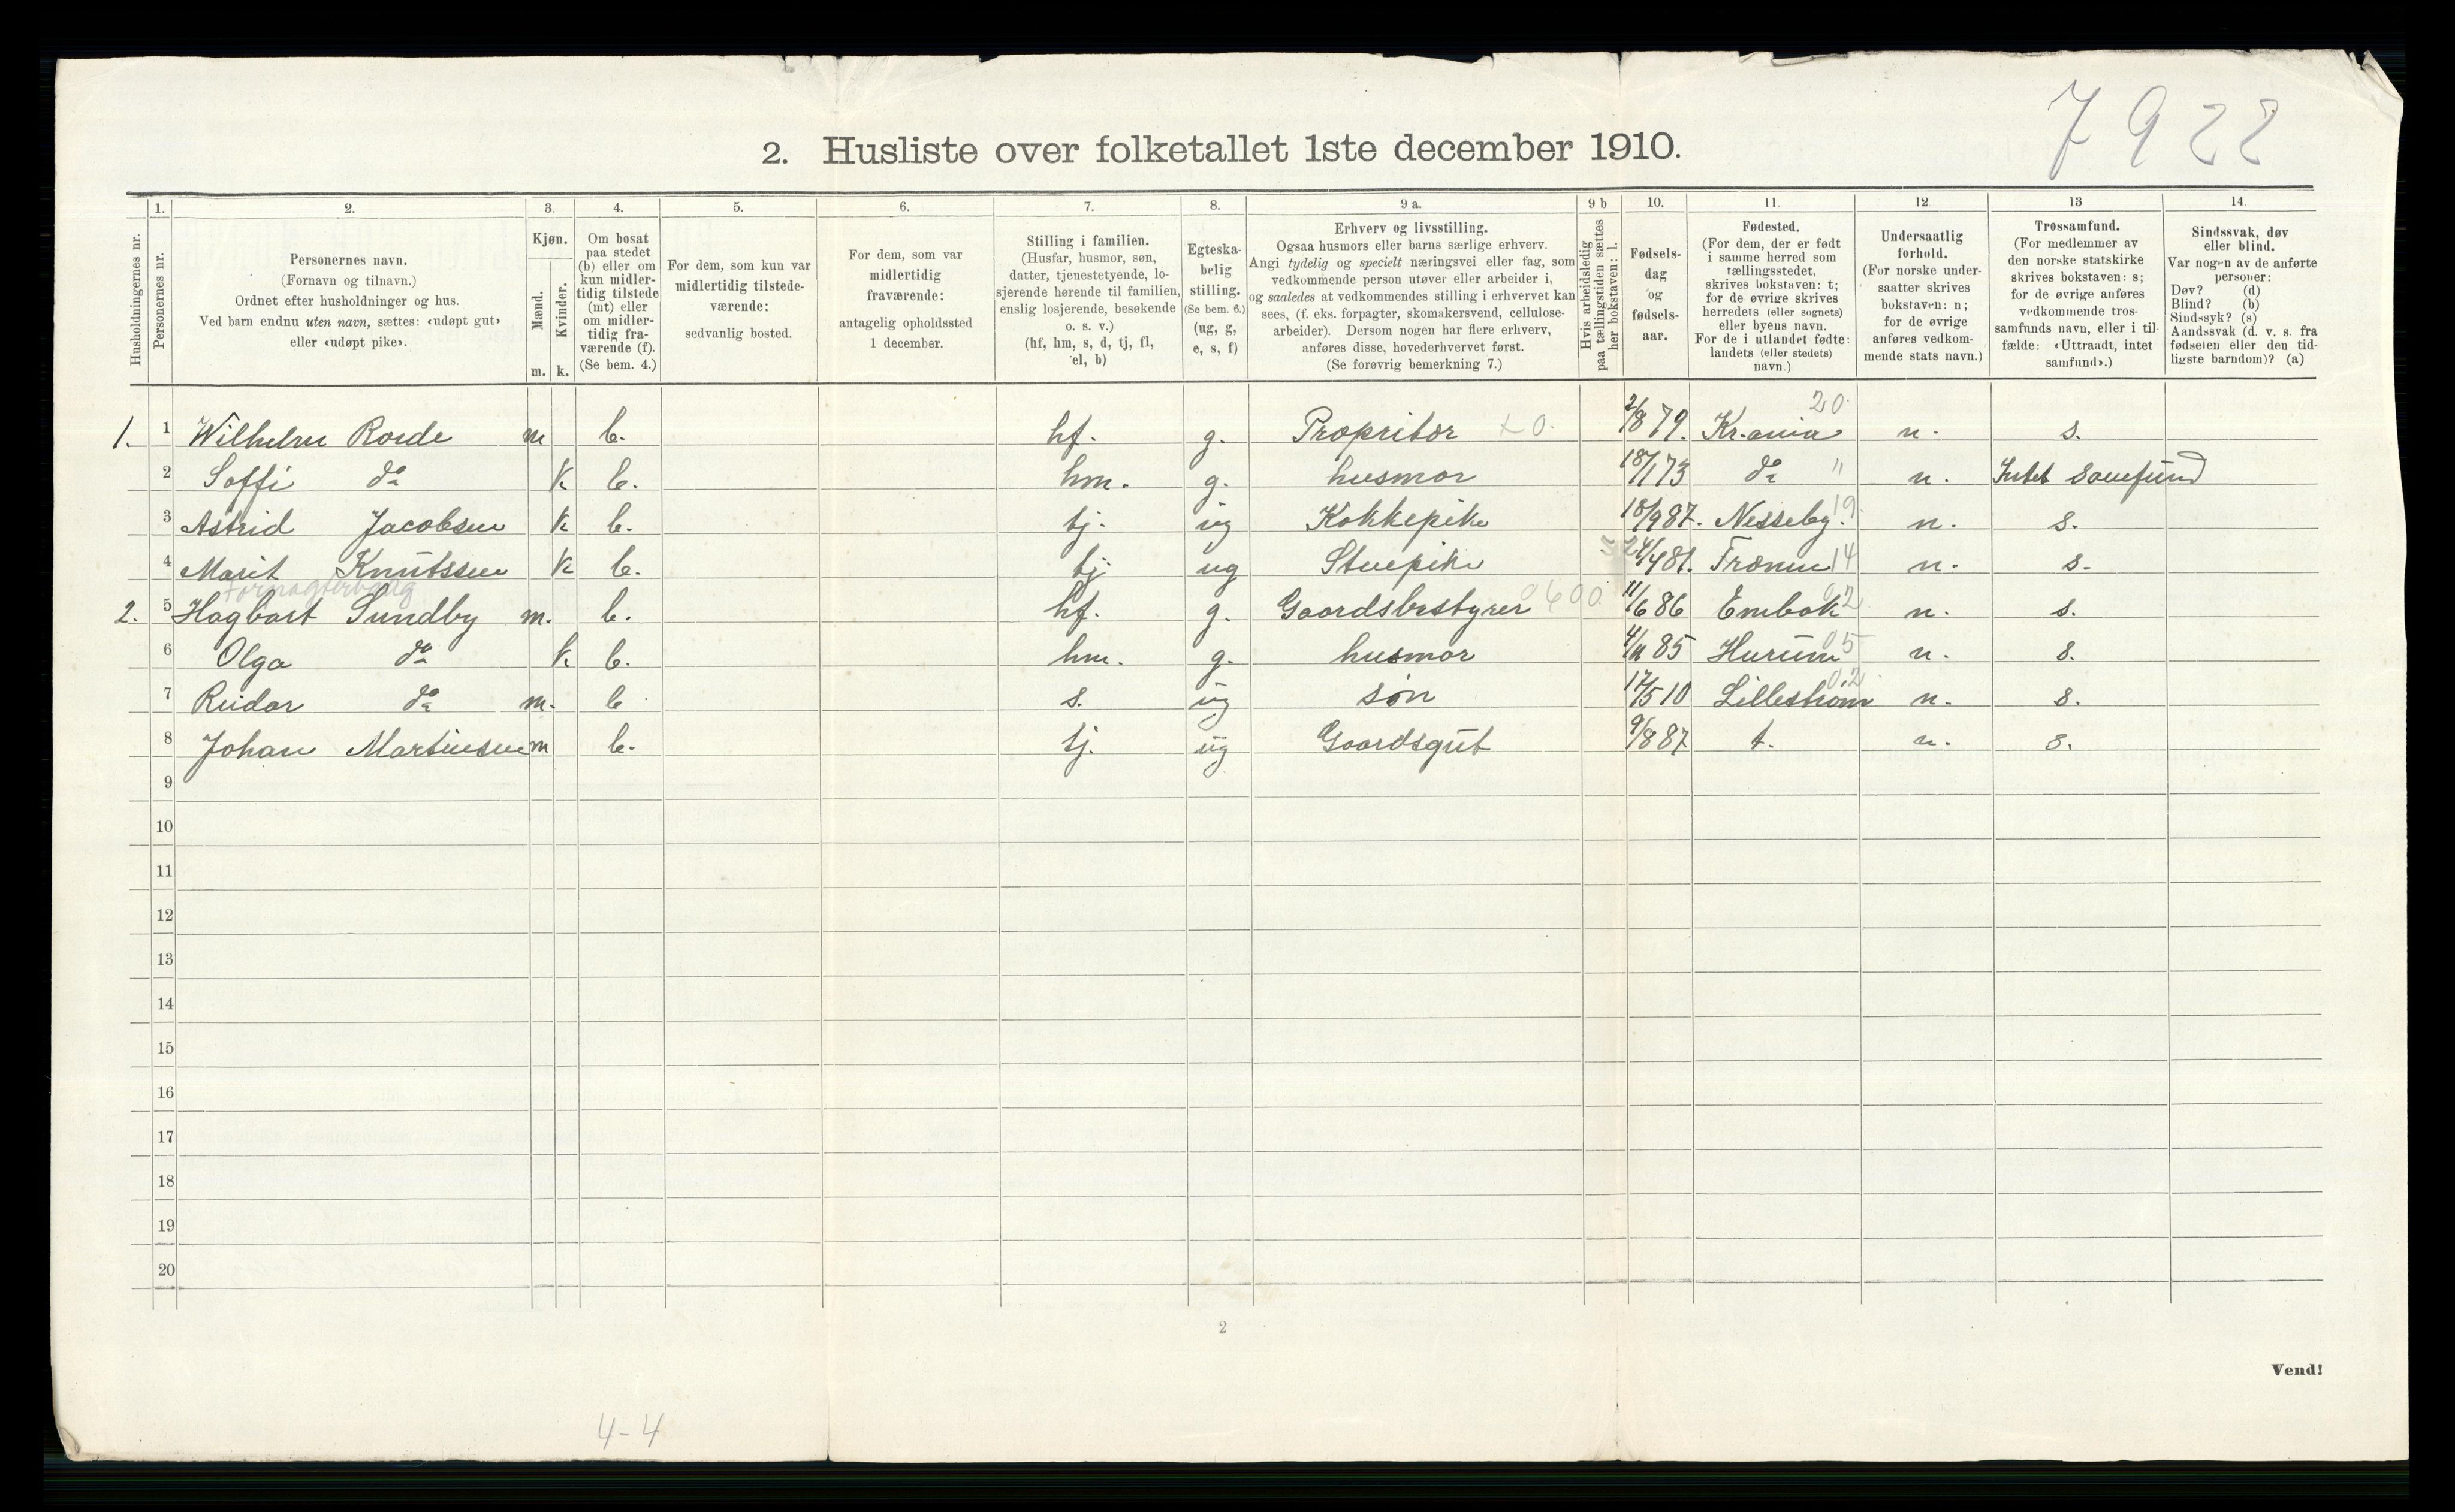 7922
2. Husliste over folketallet 1ste december 1910.
Husholdningernes nr.
1.
Personernes nr.
2.
Personernes navn.
(Fornavn og tilnavn.)
Ordnet efter husholdninger og hus.
Ved barn endnu uten navn, sættes: «udøpt gut»
eller «udøpt pike».
3.
Kjøn.
Mænd.
Kvinder.
m. k.
4.
Om bosat
paa stedet
(b) eller om
kun midler-
tidig tilstede
(mt) eller
om midler-
tidig fra-
værende (f).
(Se bem. 4.)
5.
For dem, som kun var
midlertidig tilstede-
værende:
sedvanlig bosted.
6.
For dem, som var
midlertidig
fraværende:
antagelig opholdssted
1 december.
7.
Stilling i familien.
(Husfar, husmor, søn,
datter, tjenestetyende, lo-
sjerende hørende til familien,
enslig losjerende, besøkende
o. s. v.)
(hf, hm, s, d, tj, fl,
el, b)
8.
Egteska-
belig
stilling.
(Se bem. 6.)
(ug, g,
e, s, f)
9 a.
Erhverv og livsstilling.
Ogsaa husmors eller barns særlige erhverv.
Angi tydelig og specielt næringsvei eller fag, som
vedkommende person utøver eller arbeider i,
og saaledes at vedkommendes stilling i erhvervet kan
sees, (f. eks. forpagter, skomakersvend, cellulose-
arbeider). Dersom nogen har flere erhverv,
anføres disse, hovederhvervet først.
(Se forøvrig bemerkning 7.)
9 b
Hvis arbeidsledig
paa tællingstiden sættes
her bokstaven: l.
10.
Fødsels-
dag
og
fødsels-
aar.
11.
Fødested.
(For dem, der er født
i samme herred som
tællingsstedet,
skrives bokstaven: t;
for de øvrige skrives
herredets (eller sognets)
eller byens navn.
For de i utlandet fødte:
landets (eller stedets)
navn.)
12.
Undersaatlig
forhold.
(For norske under-
saatter skrives
bokstaven: n;
for de øvrige
anføres vedkom-
mende stats navn.)
13
Trossamfund.
(For medlemmer av
den norske statskirke
skrives bokstaven: s;
for de øvrige anføres
vedkommende tros-
samfunds navn, eller i til-
fælde: «Uttraadt, intet
samfund».)
14.
Sindssvak, døv
eller blind.
Var nogen av de anførte
personer:
Døv? (d)
Blind? (b)
Sindssyk? (s)
Aandssvak (d. v. s. fra
fødselen eller den tid-
ligste barndom)? (a)
1. 1 Wilhelm Roede m b. hf. g. Propritær 2/8 79. Kr.ania 20 n. s.
2 Soffi do k b. hm. g. husmor 18/1 73 do " n. Intet samfund
3 Astrid Jacobsen k b. tj. ug Kokkepike 18/9 87. Nesseby. 19 n. s.
4 Marit Knutssen k b. tj. ug Stuepike 24/4 81. 14 n. s.
2. 5 Hagbart Sundby m. b. hf. g. Gaardsbestyrer 0600 11/6 86 Enebak 02 n. s.
6 Olga do k b. hm. g. husmor 4/11 85 Hurum 05 n. s.
7 Reidar do m. b s. ug søn 17/5 10 Lillestrøm 02 n. s.
8 Johan Martinsen m b. tj. ug Gaardsgut 9/8 87 t. n. s.
9
10
11
12
13
14
15
16
17
18
19
20
2
Vend!
4-4